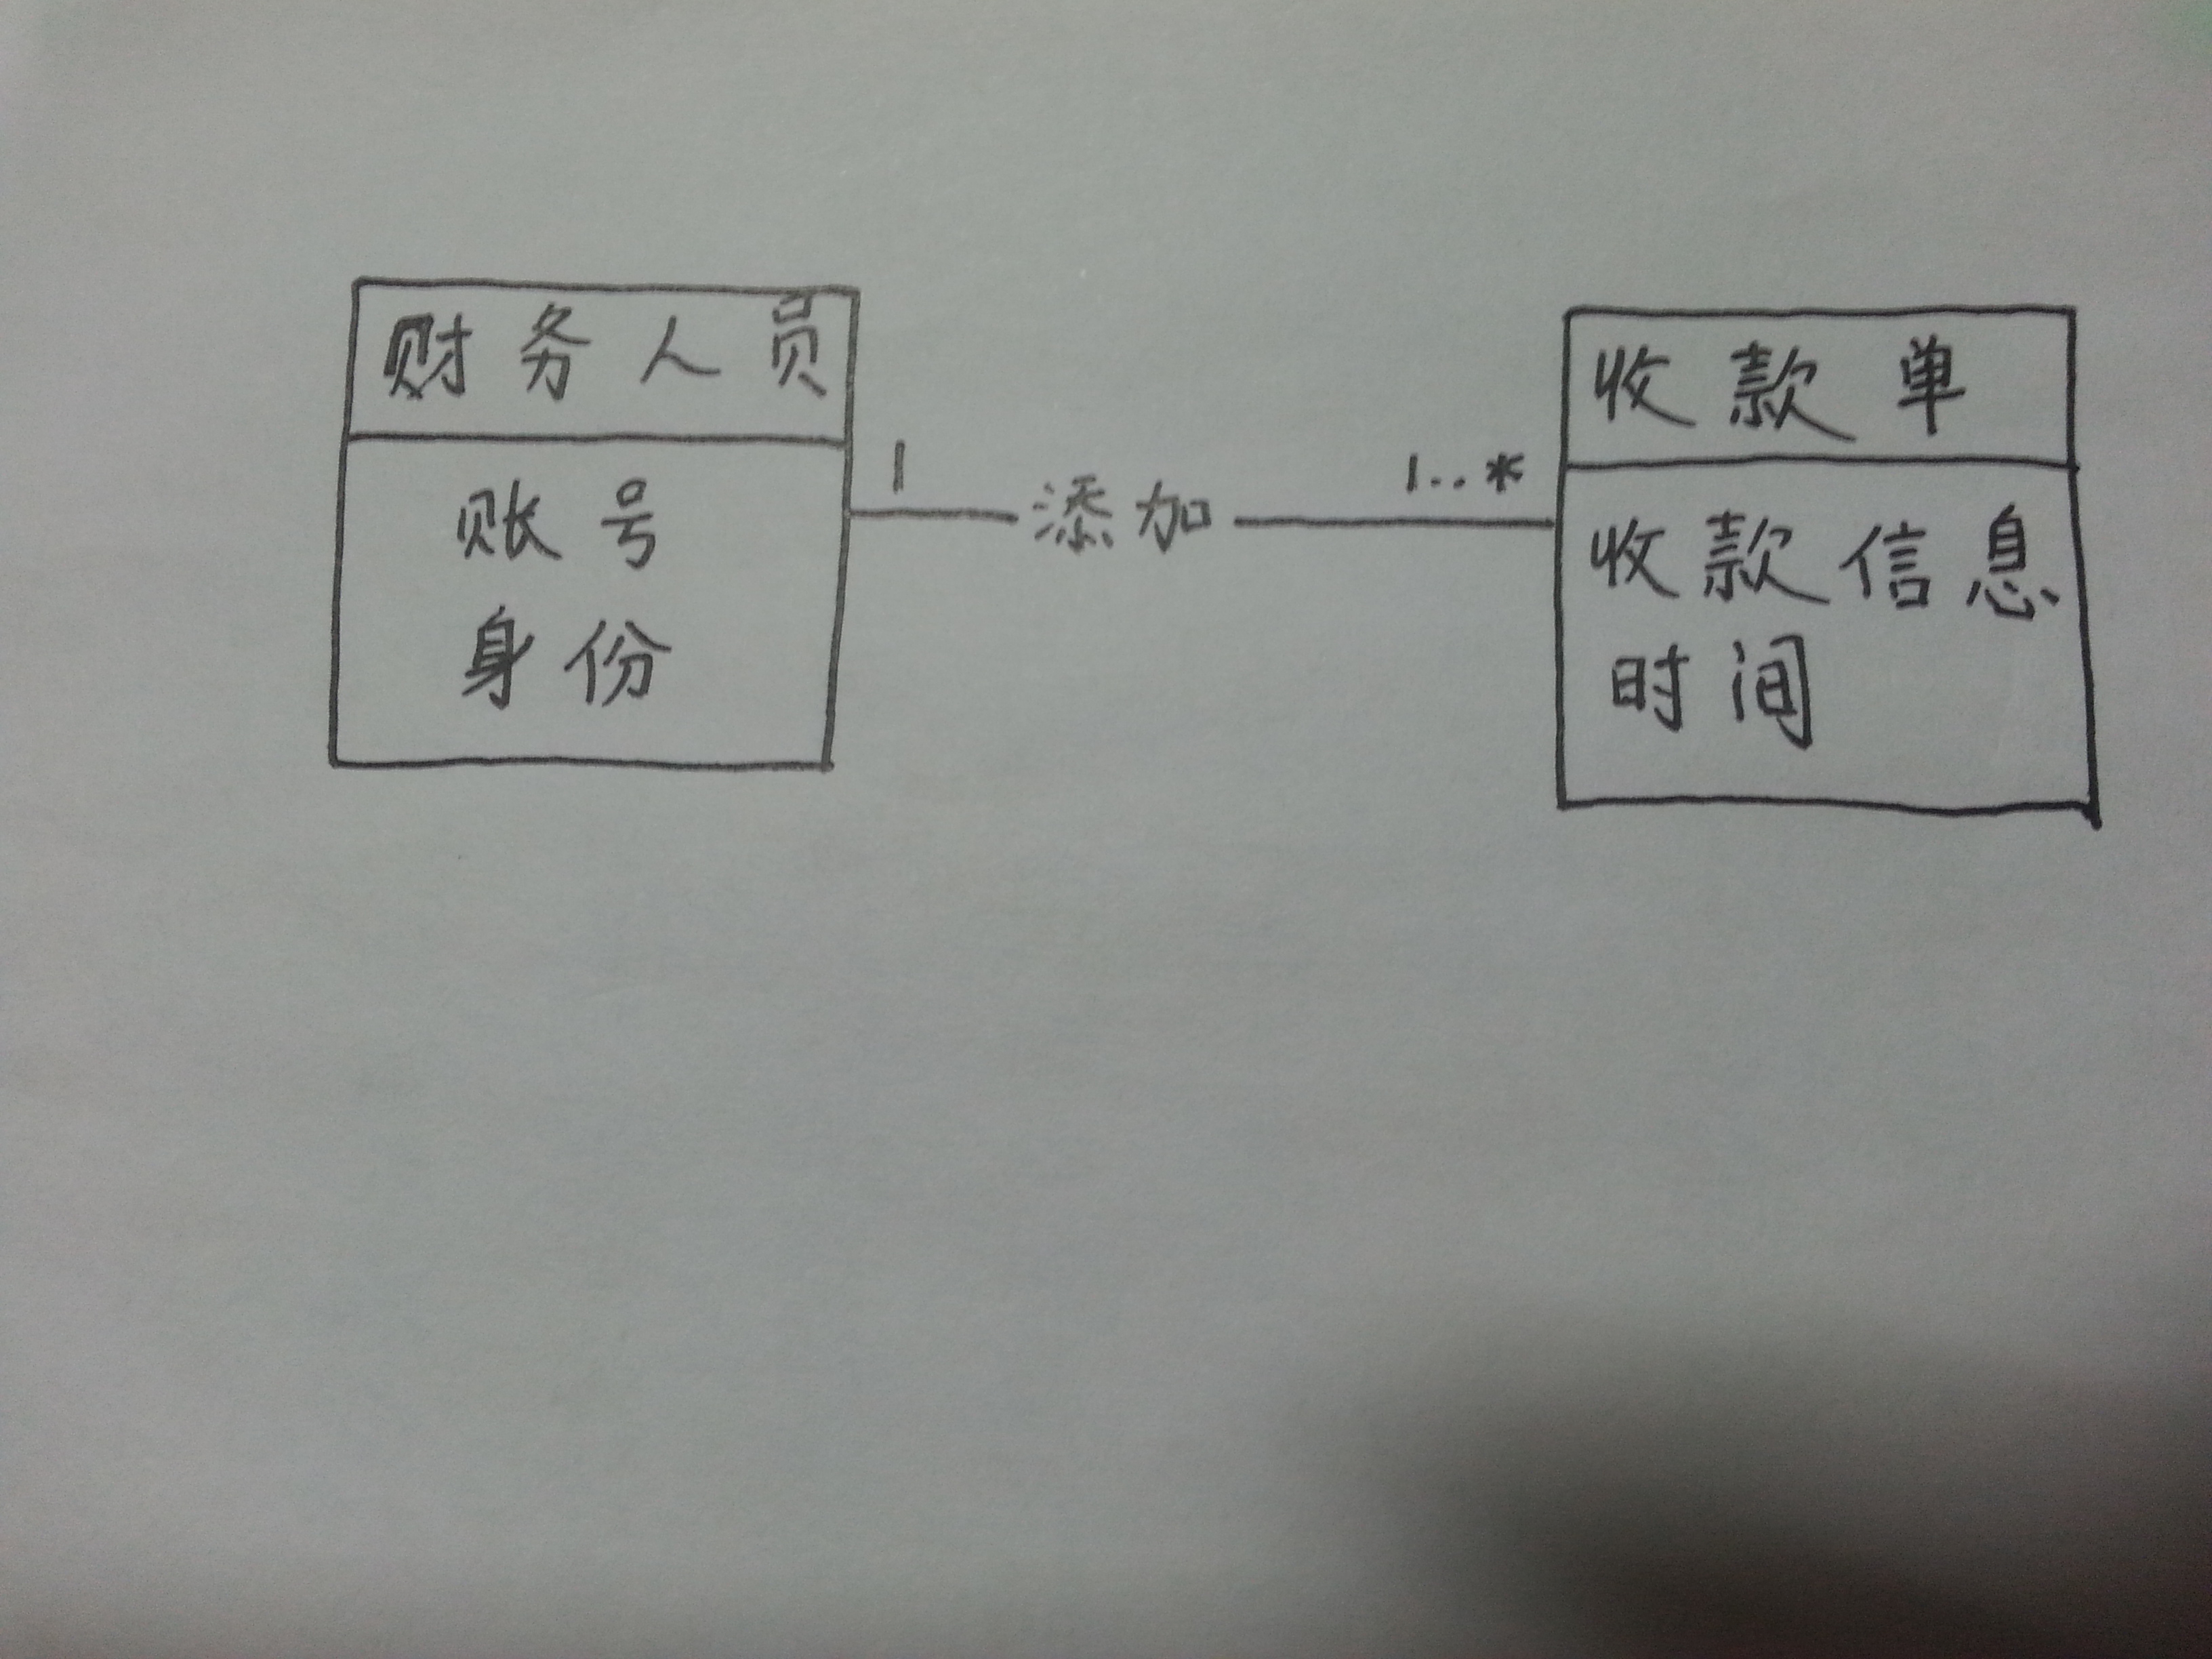 财务人员
账号
身份
1 添加 1..*
收款单
收款信息
时间